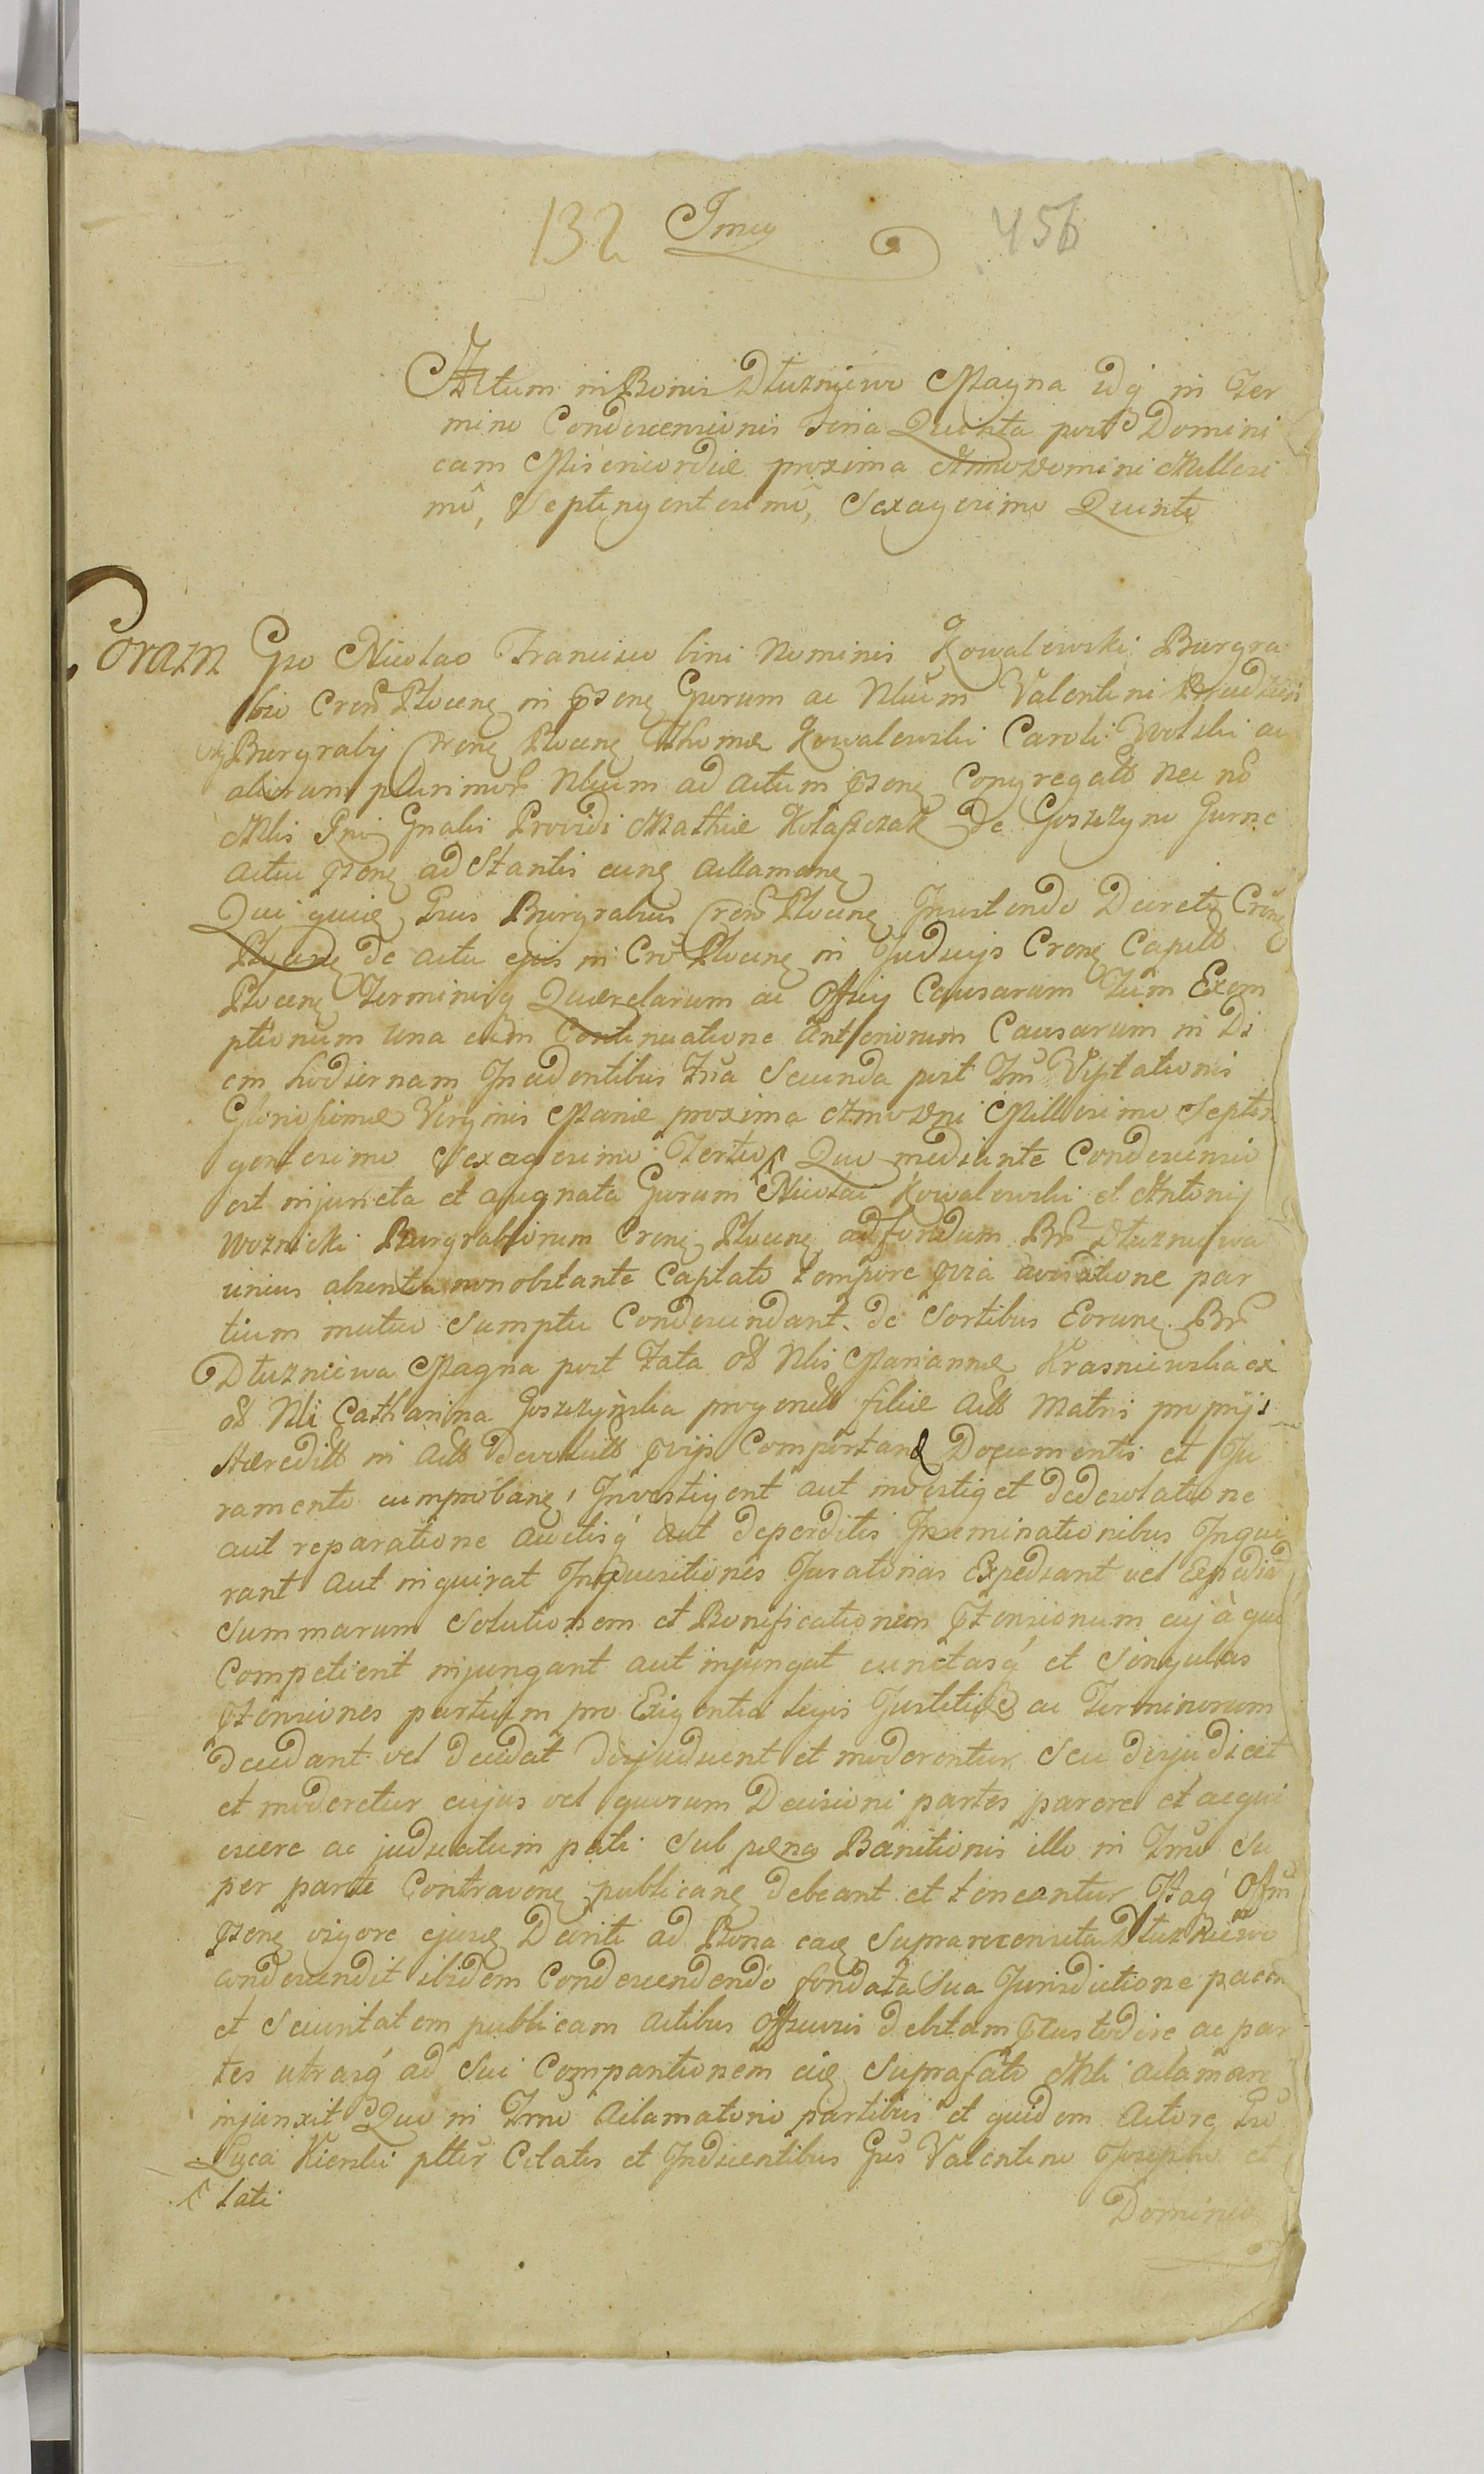 132 Imo 456
Actum in Bonis Dłuzniewo Magna idq in Ter
mino Condescensionis Feria Quinta post Domini
cam Misericordiæ proxima Anno Domini Millesi
mô, Septingentesimô, Sexagesimo Quinto
Coram Gso Nicolao Francisco bini Nominis Kowalewski Burgra
bio Crens Plocen in psen Gsorum ac Nlium Valentini
Burgrabij Crens Plocen Thomæ Kowalewski Caroli Wolski ac
aliorum plurimor Nlium ad actum psens Congregator nec no
Mlis Rni Gnalis Providi Mathiæ Kołaszczak de Goszczyno Gurne
actui psens ad Stantis eunq acllamanq
Qui quiq Gsus Burgrabius Crens Plocen Insistendo Decreto Crens
Plocens de actu ejus in Crô Plocen in Judicijs Crens Capitl
Plocens Terminiq Querelarum ac Officij Causarum Tum Exem
ptionum una cum Continuatione Anteriorum Causarum in Di
em hodiernam Incidentibus Fria Secunda post Fm Visitationis
Gloriosissimæ Virginis Mariæ proxima Anno Dni Millesimo Septin
gentesimo Sexagesimo Tertio Quo mediante Condescensio
est injuncta et assignata Gsorum Nicolai Kowalewski et Antonij
Woznicki Burgrabiorum Crens Plocens ad fondum Br Dłuzniewa
unius absentia non obstante Captato tempore pvia avisatione par
tium mutuo Sumptu Condescendant. de Sortibus Eorunq Br
Dłuzniewa Magna post Fata ol Nlis Mariannæ Krasniewska ex
ol Nli Catharina Goszczyńska progenit filiæ act Matris proprijs
Hæredit in act devolut pvijs Comportand Documentis et Ju
ramento comproban, Investigent aut investiget de desolatione
aut reparatione auctisq aut deperditis Inseminationibus Inqui
rant aut inquirat Inquisitiones Juratorias Expediant vel Expediat
Summarum Solutionem et Bonificationem ptensionum cuj à quo
Competierit injungant aut injungat cunctasq et Singulas
ptensiones partium pro Exigentia legis Justitiæ ac Terminorum
decidant vel decidat dijudicent et moderentur seu dijudicet
et moderetur cujus vel quorum Decisioni partes parere et acqui
escere ac judicatum pati Sub pæna Banitionis illo in Fmo Su
per parte Contraven publican debeant et teneantur Itaq Offm
psens vigore ejusq Decreti ad Bona eaq Suprarecensita Dłuzniewo
condescendit ibidem Condescendendo fondata Sua Jurisdictione pacem
et Securitatem publicam actibus Officiosis debitam pcustodire ac par
tes utrasq ad Sui Comparitionem eiq Suprafato Mli aclamare
injunxit Quo in Fmo Aclamatorio partibus et quidem Actore Gso
Luca Kierski ptter Citatis et Inducentibus Gsus Valentino Josepho et
lati
Dominio